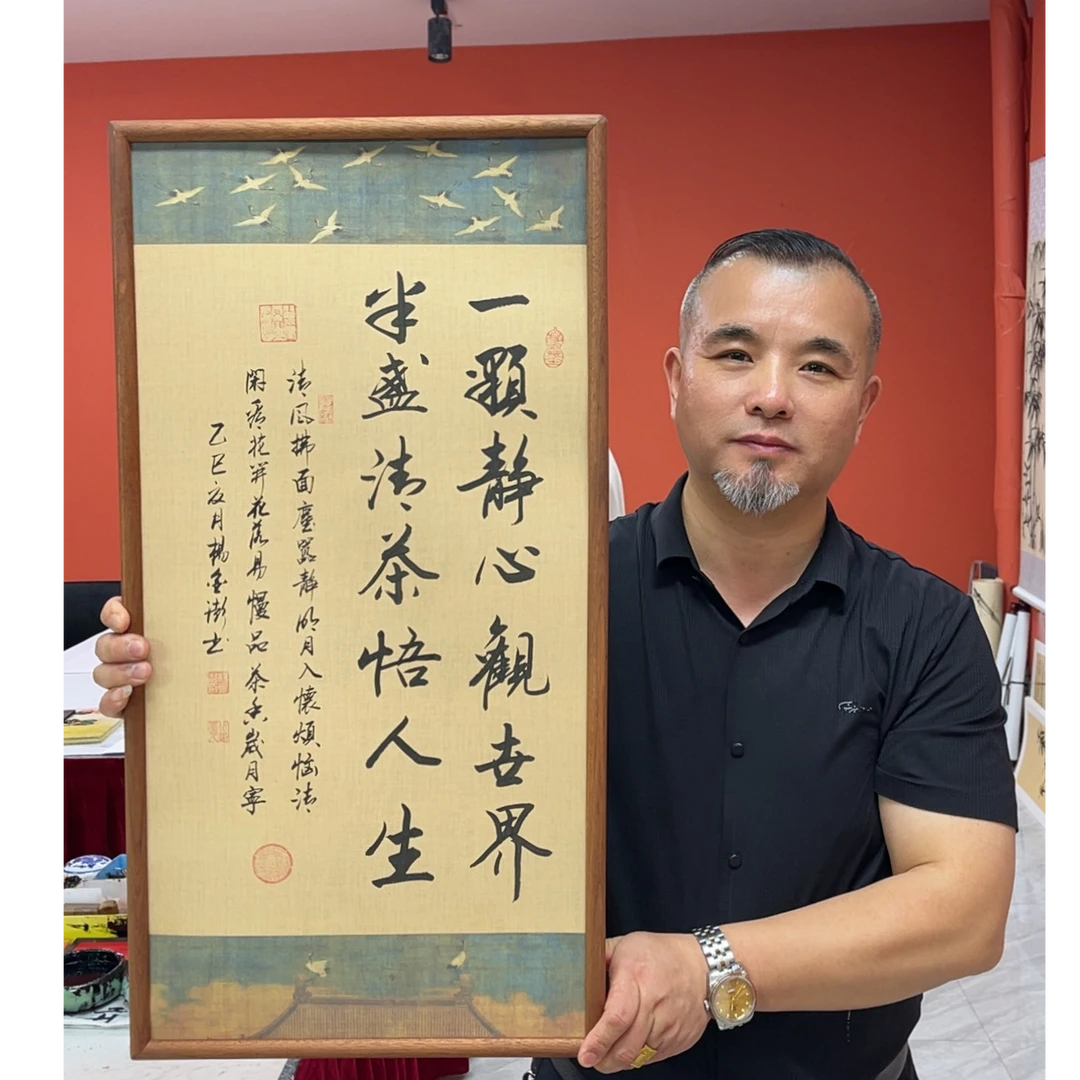 一顆静心觀世界
半盞清茶悟人生
清风拂面塵嚣静明月入懷煩恼清
閑看花開花落易慢品茶香歲月寧
乙巳夏月楊金澎书